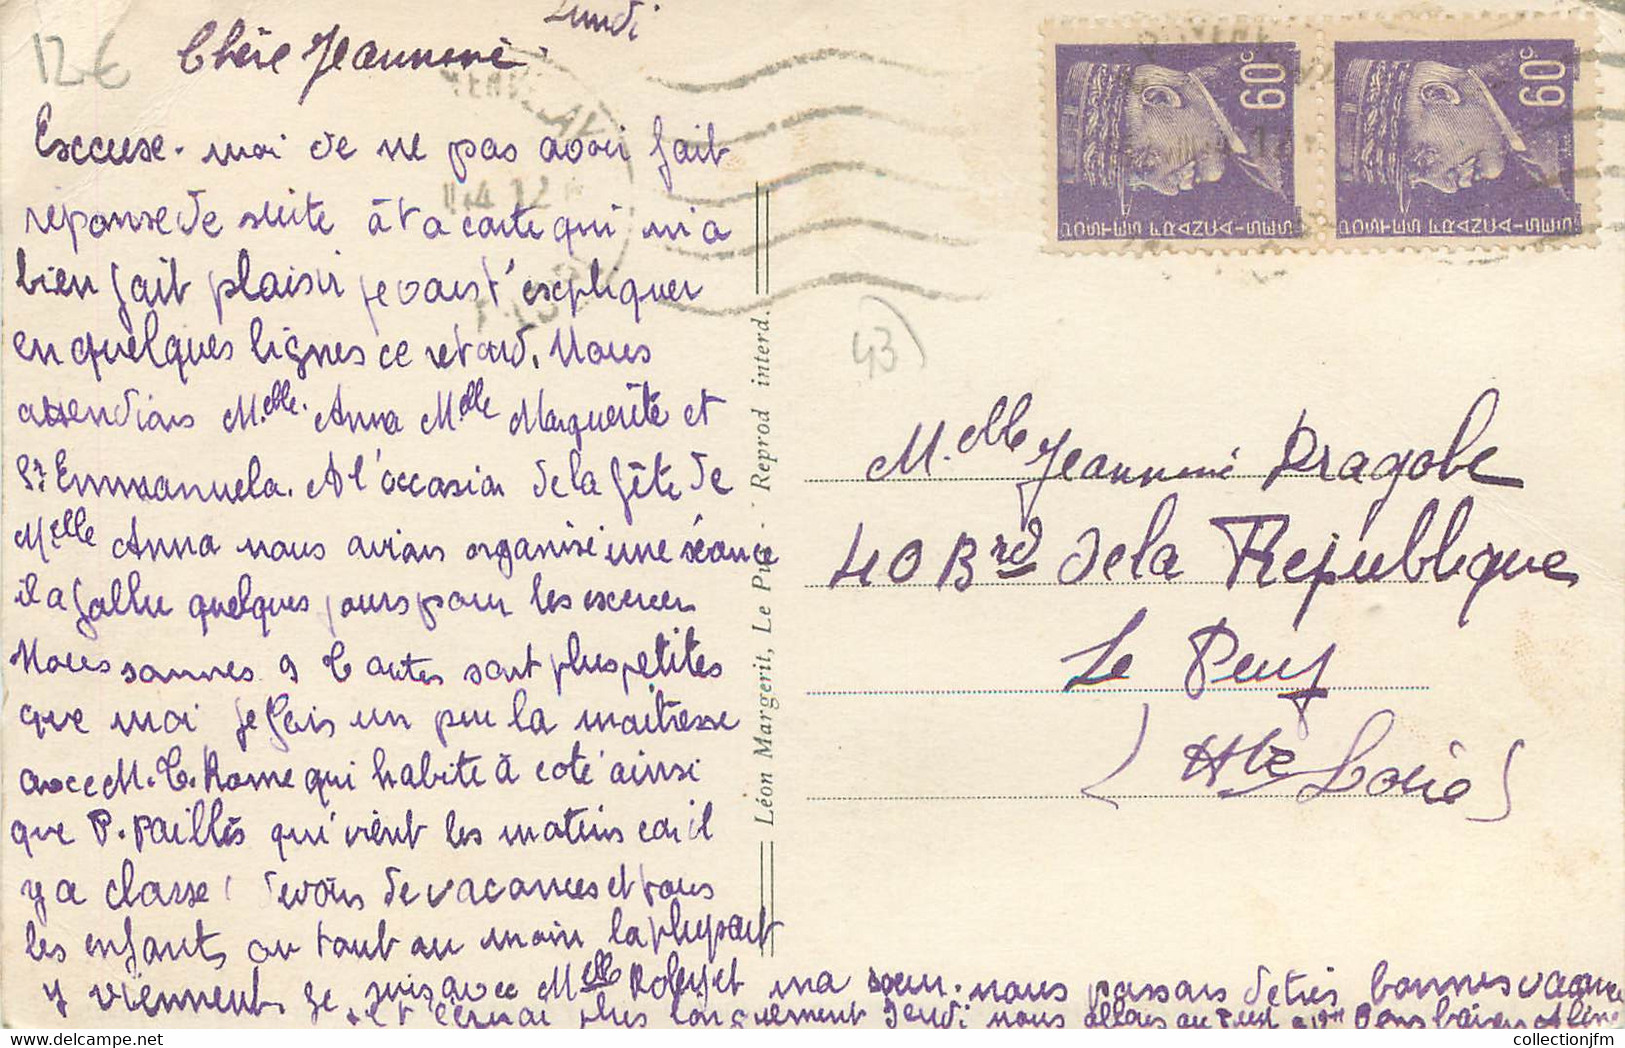 12€
Lundi
Chère Jeannine
Excuse-moi de ne pas avoir fait
réponse de suite à ta carte qui m'a
bien fait plaisir je vais t'expliquer
en quelques lignes ce retard. Nous
attendions Melle Anna Melle Marguerite et
Sr Emmanuela. A l'occasion de la fête de
Melle Anna nous avions organisé une séance
il a fallu quelques jours pour les exercer
Nous sommes 9 les autres sont plus petites
que moi je fais un peu la maitresse
avec M. C. Rome qui habite à coté ainsi
que P. Paillès qui vient les matins car il
y a classe (devoirs de vacances et tous
les enfants ou tout au moins la plupart
y viennent Je suis avec Melle ma soeur. nous passons de très bonnes vacances
t'écrirai plus longuement Jeudi nous allons au
60c
POSTES FRANÇAISES
60c
POSTES FRANÇAISES
43
Melle Jeannine Dragole
40 Brd de la République
Le Puy
(Hte Loire)
Léon Margerit, Le Puy - Reprod interd.
www.delcampe.net
collectionjfm